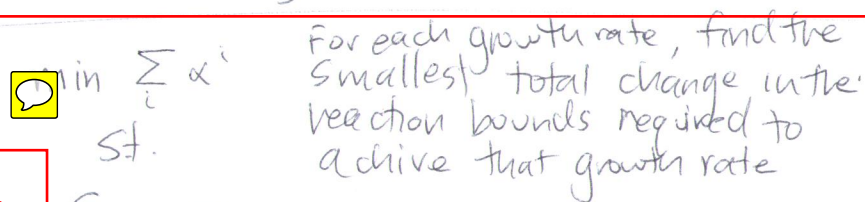 min Σ αⁱ
i
st.
For each growth rate, find the
smallest total change in the
reaction bounds required to
achive that growth rate